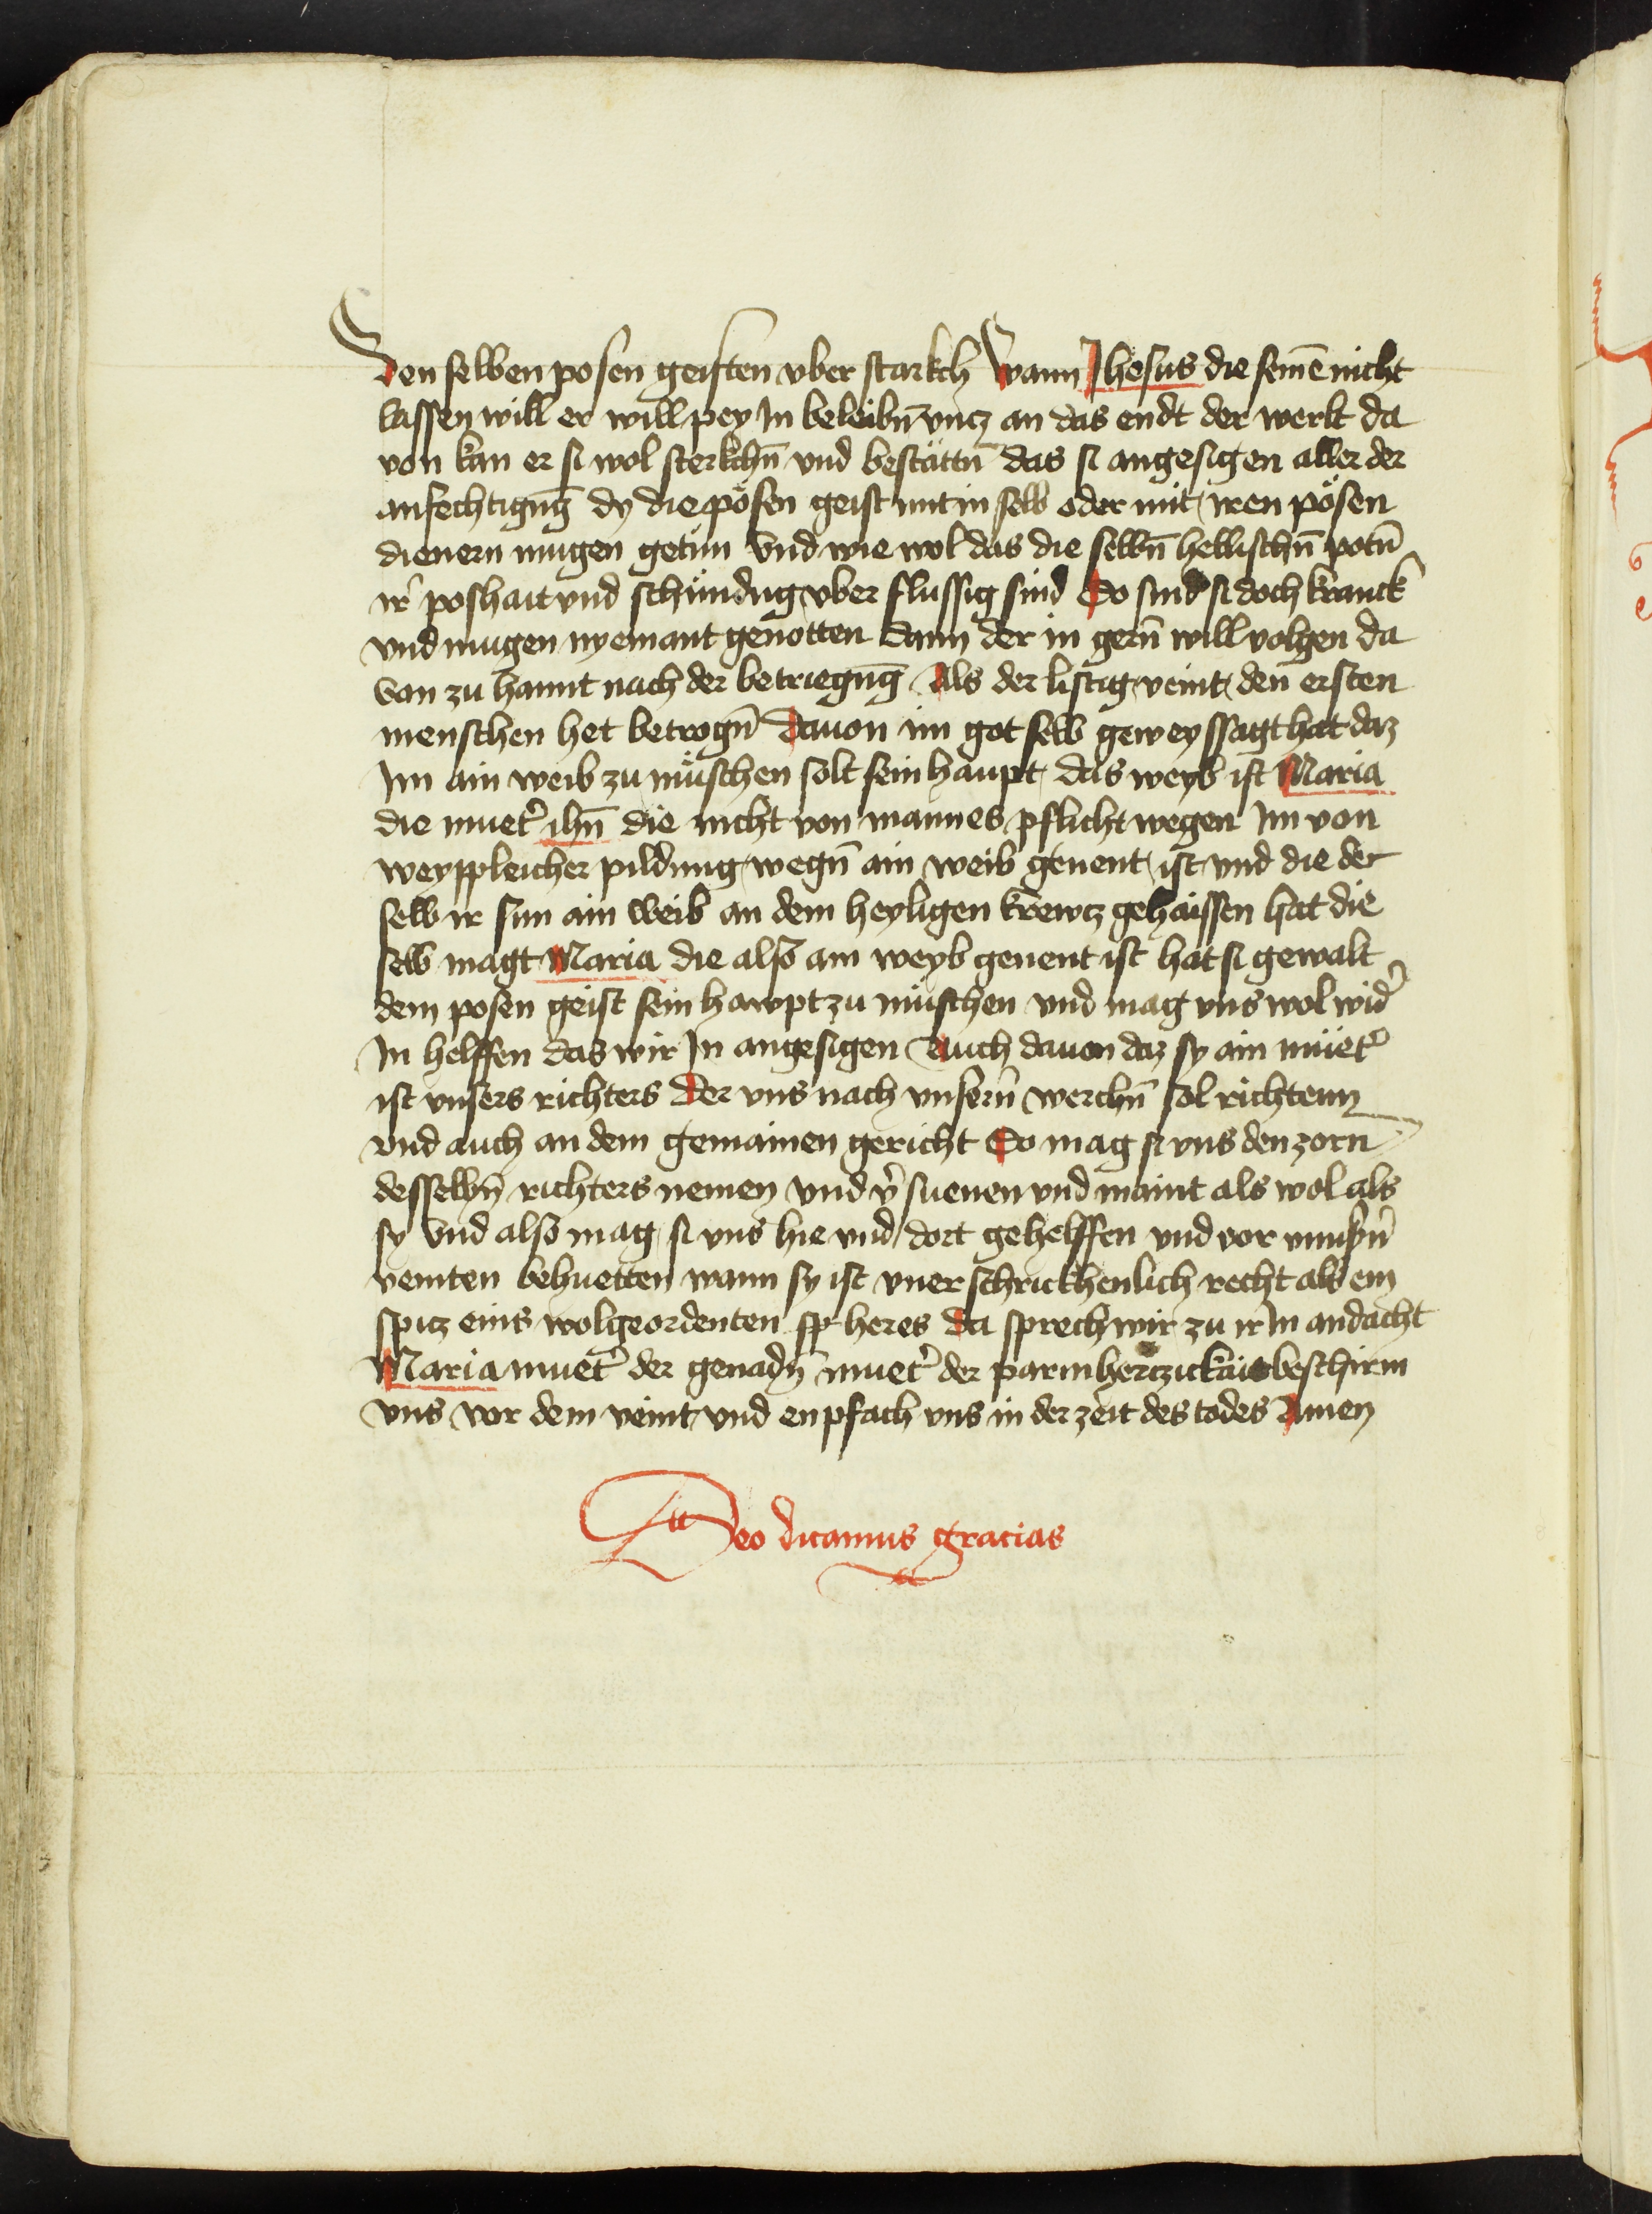 den selben posen geisten vber starkch Wann Jhesus die semē nicht
lassen will er will pey In beleibn̄ vncz an das endt der werlt da
von kan er si wol sterkchn̄ vnd bestättn̄ das si angesigen aller der
anfechtigūg dy die pösen geist mit in selb oder mit iren pösen
dienern mugen getun Vnd wie wol das die selbn̄ hellischn̄ potn̄
ir̄ poshait vnd schündug vber flussig sind So sind si doch kranck
vnd mugen nyemant genotten dann der in gern̄ will volgen da
von zu hannt nach der betriegūg Als der listig veint den ersten
menschen het betrogn̄ Dauon im got selb geweyssagt hat daz
Im ain weib zu müschen solt sein haupt das weyb ist Maria
die muet̄ ihū die nicht von mannes pflicht wegen Im von
weyppleicher pildung wegn̄ ain weib genent ist vnd die der
selb ir sun ain weib an dem heyligen krewcz gehaissen hat die
selb magt Maria die also ain weyb genent ist hat si gewalt
dem posen geist sein hawpt zu müschen vnd mag vns wol wid̄
In helffen das wir In angesigen Auch dauon daz sy ain müet̄
ist vnsers richters Der vns nach vnsern̄ werchn̄ sol richtenn
vnd auch an dem gemainen gericht So mag si vns den zorn
desselbn̄ richters nemen vnd v̄suenen vnd maint als wol als
sy Vnd also mag si vns hie vnd dort gehelffen vnd vor vnnsn̄
veinten behuetten wann sy ist vnerschrickhenlich recht als ein
spicz eins wolgeordenten sp heres Da sprech wir zu ir In andacht
Maria muet̄ der genadn̄ muet̄ der parmherczickait beschirm
vns vor dem veint vnd enpfach vns in der zeit des todes Amen
Deo dicamus gracias